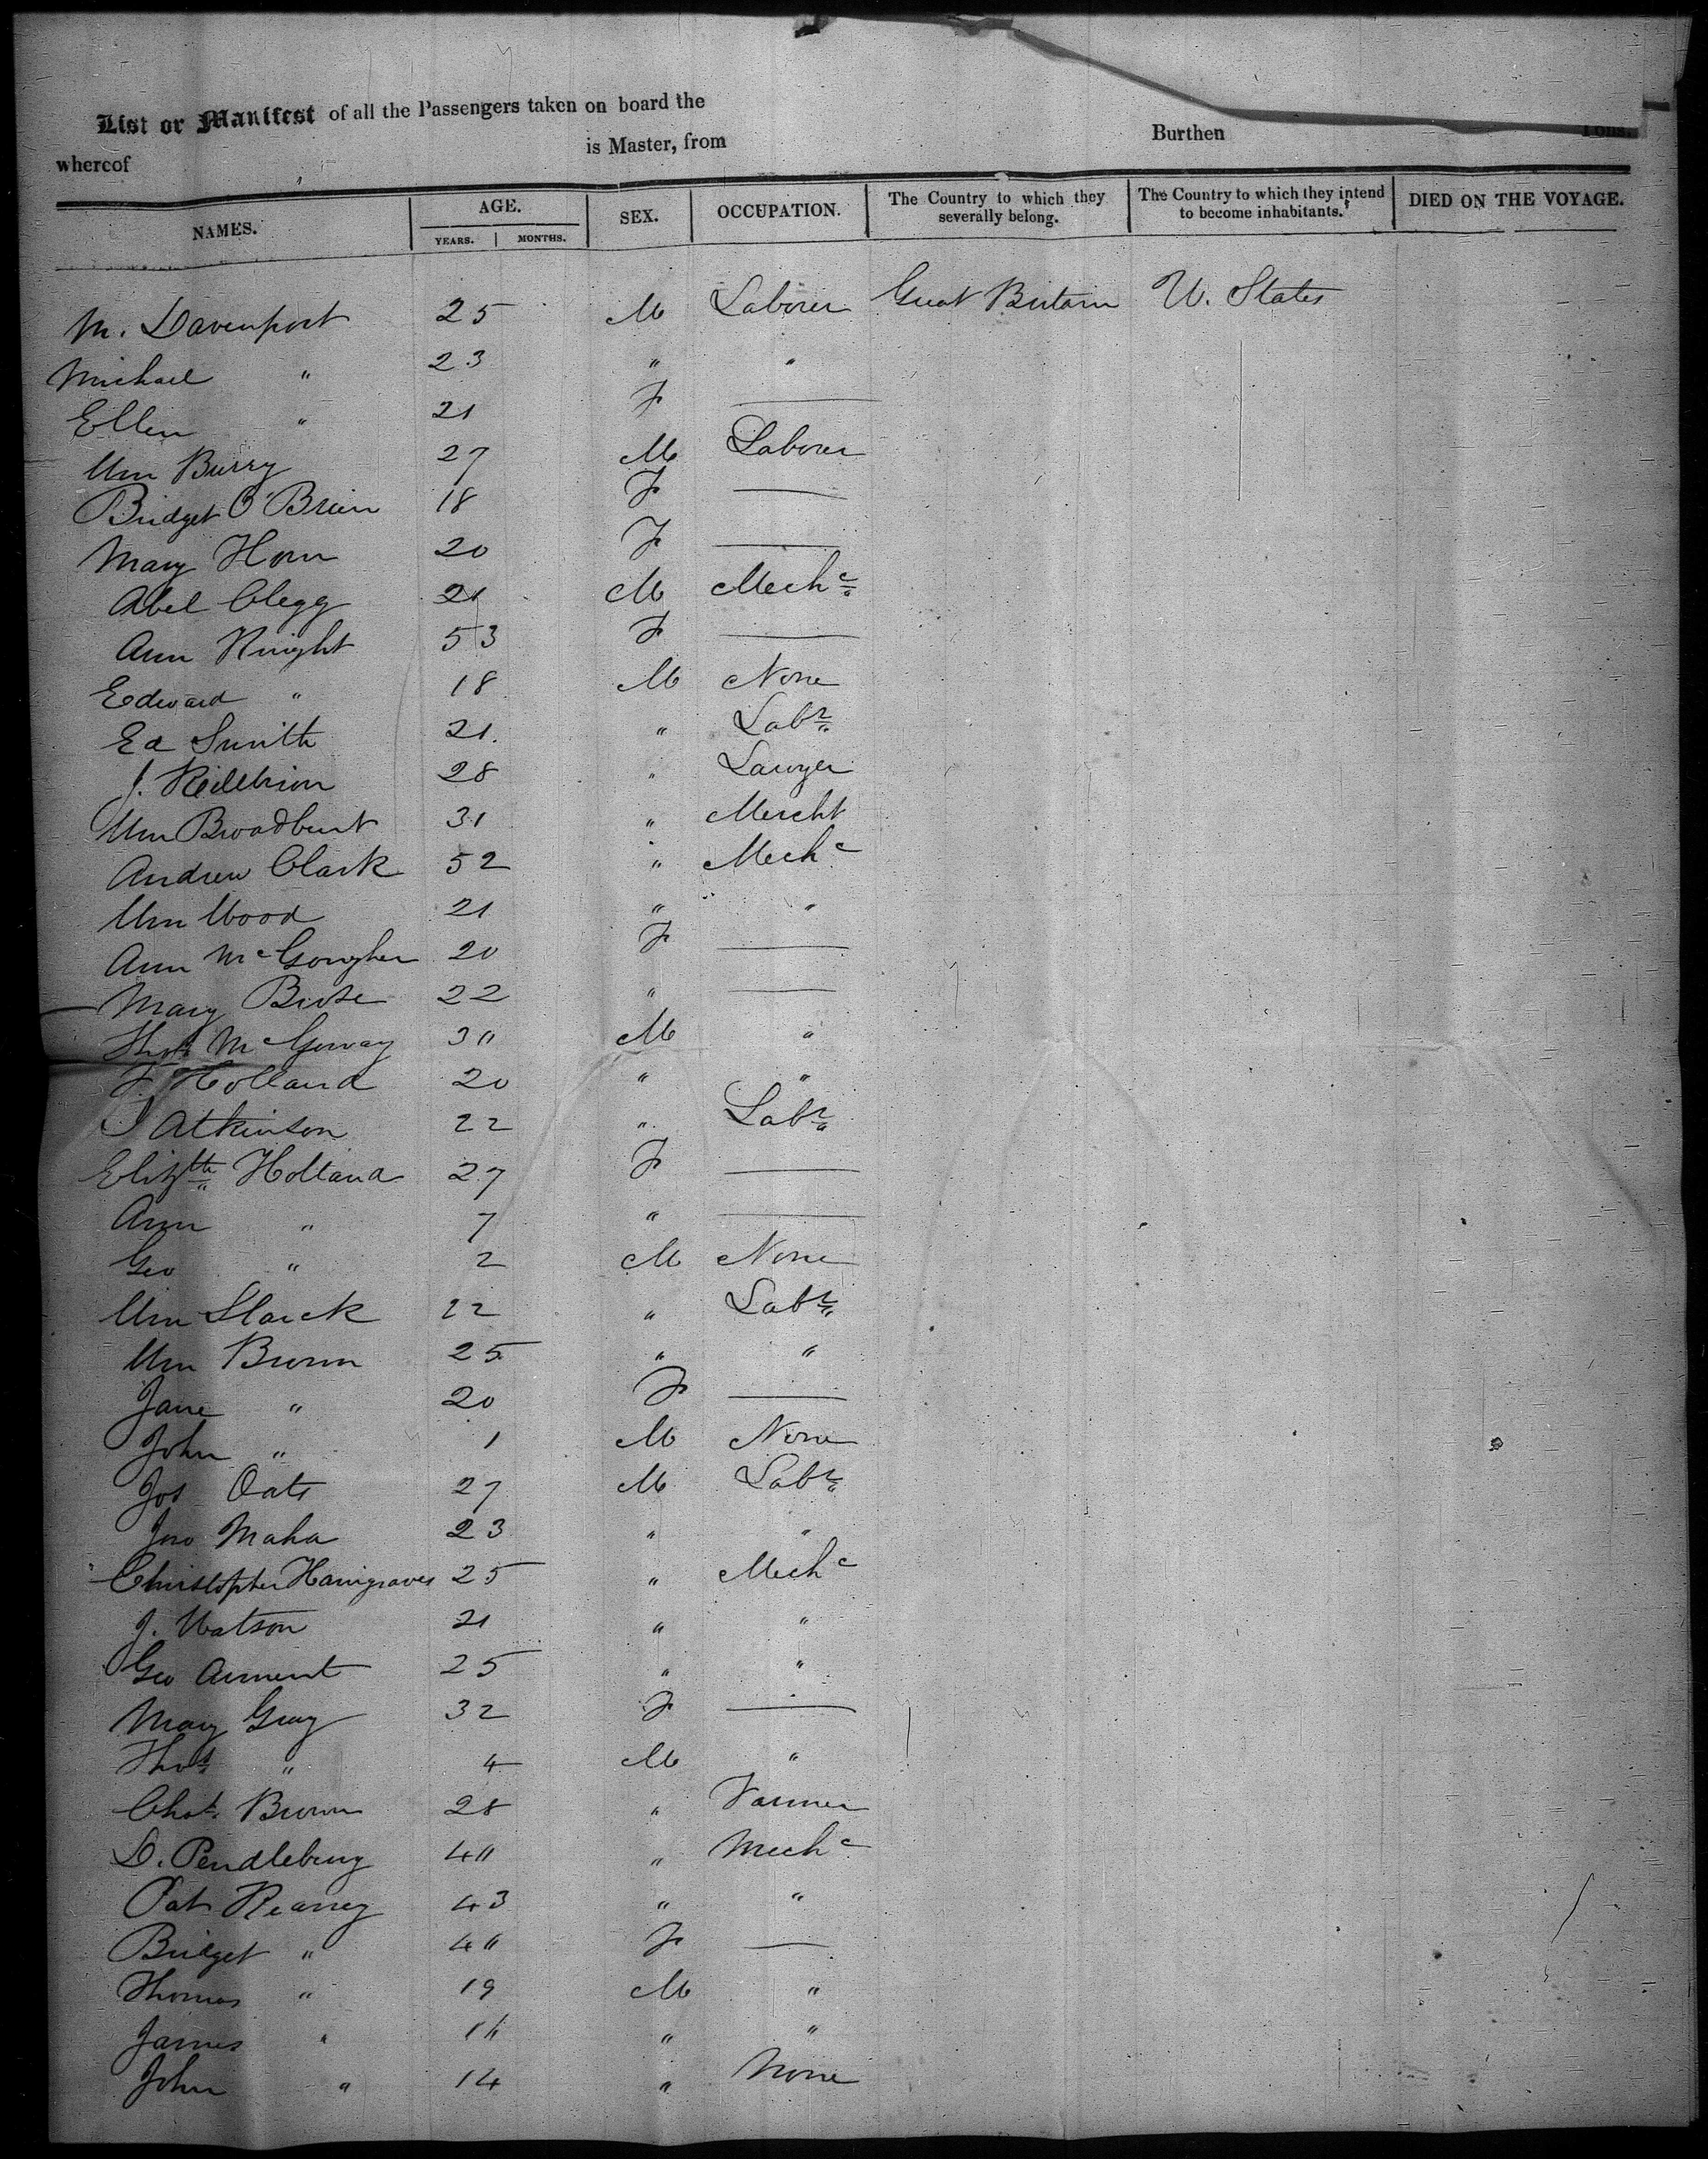 List or Manifest of all the Passengers taken on board the
whereof is Master, from Burthen Tons.
NAMES. AGE. YEARS. MONTHS. SEX. OCCUPATION. The Country to which they severally belong. The Country to which they intend to become inhabitants. DIED ON THE VOYAGE.
M. Davenport 25 M Laborer Great Britain U. States
Michael " 23 " "
Ellen " 21 F —
Wm Burry 27 M Laborer
Bridget O'Brien 18 F —
Mary Horn 20 F —
Abel Clegg 21 M Mechc
Ann Knight 53 F —
Edward " 18 M None
Ed Smith 21. " Labr
J. 28 " Lawyer
Wm Broadbent 31 " Mercht
Andrew Clark 52 " Mechc
Wm Wood 21 " "
Ann McGough 20 F —
Mary 22 " —
Thos McGoway 30 M "
Holland 20 " "
J Atkinson 22 " Labr
Elizth Holland 27 F —
Ann " 7 " —
Geo " 2 M None
Wm Slack 22 " Labr
Wm Brown 25 " "
Jane " 20 F —
John " 1 M None
Jos Oats 27 M Labr
Jno Maha 23 " "
Christopher Hanigraves 25 " Mechc
J. Watson 21 " "
Geo Arment 25 " "
Mary Gray 32 F —
Thos " 4 M "
Chas. Brown 28 " Farmer
D. Pendlebury 40 " Mechc
Pat Kearney 43 " "
Bridget " 40 F —
Thomas " 19 M "
James " 16 " "
John " 14 " None